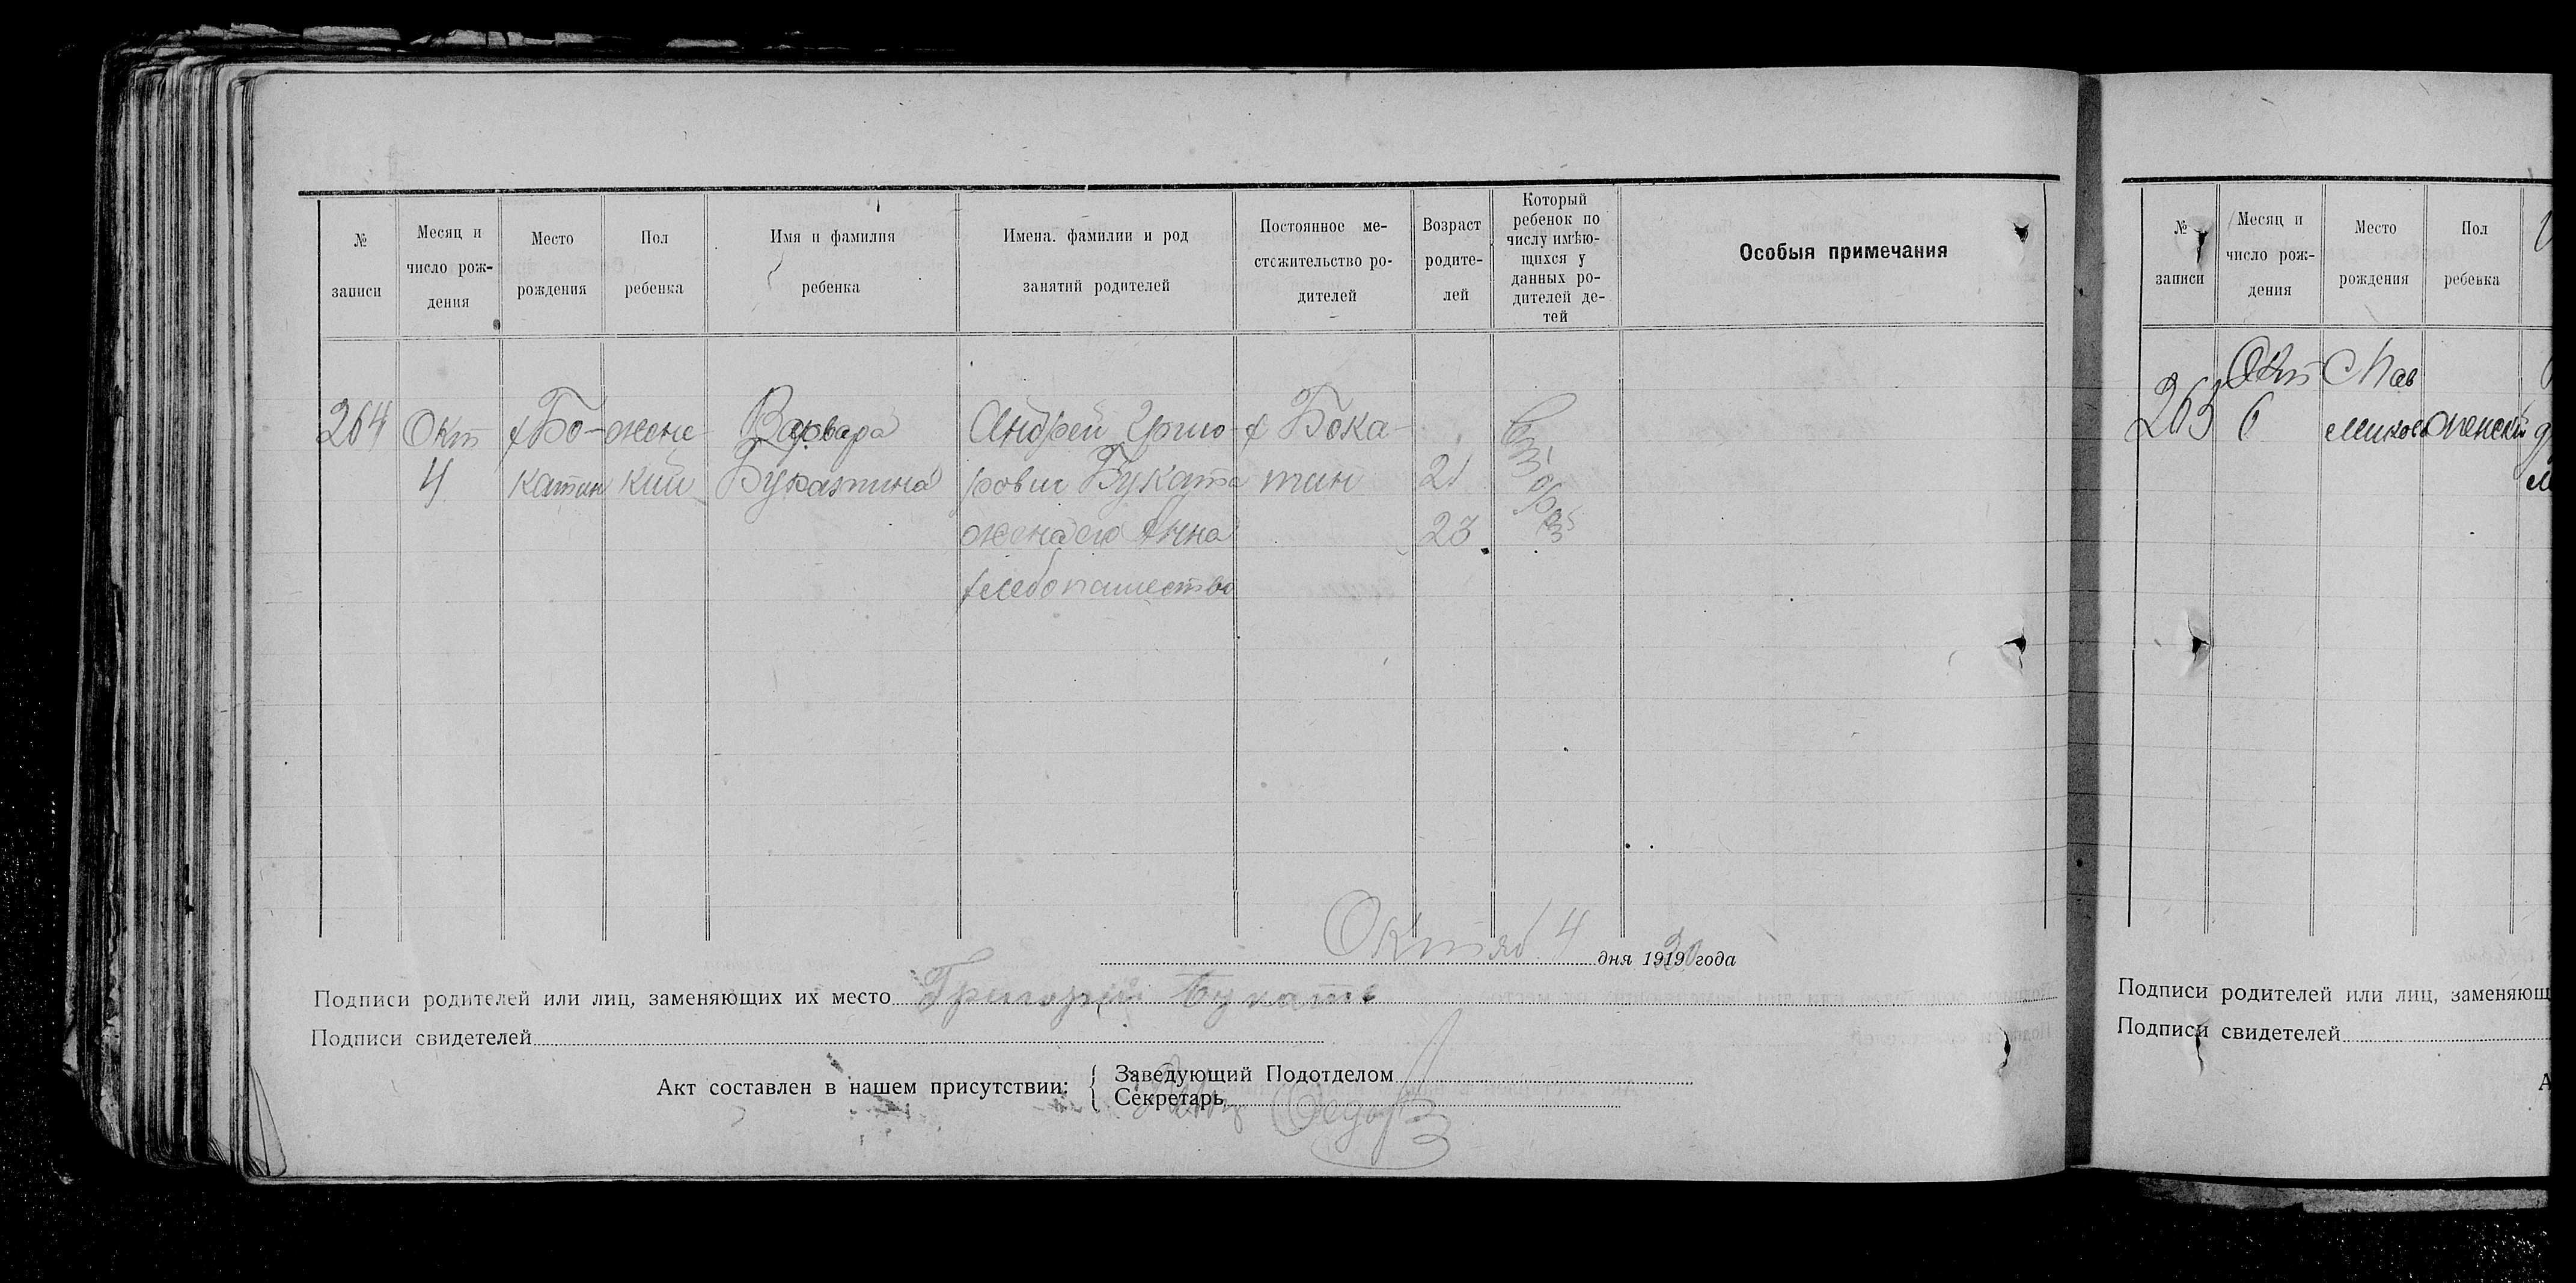 № записи
Месяц и число рож-дения
Место рождения
Пол ребенка
Имя и фамилия ребенка
Имена. фамилии и род занятий родителей
Постоянное ме-стожительство ро-дителей
Возраст родите-лей
Который ребенок по числу имѣю-щихся у данных ро-дителей де-тей
Особыя примечания
264 Окт х Бо- женс Варвара Андрей Григо х Бока-
4 катин кий Букатина рович Букати тин 21
жена его Анна 23
хлебопашество
Октяб 4 дня 1920 года
Подписи родителей или лиц, заменяющих их место Григорий Букати
Подписи свидетелей
Акт составлен в нашем присутствии:
Заведующий Подотделом
Секретарь
№ записи
Месяц и число рож-дения
Место рождения
Пол ребенка
265 Окт
6 женский
Подписи родителей или лиц, заменяющ
Подписи свидетелей
А